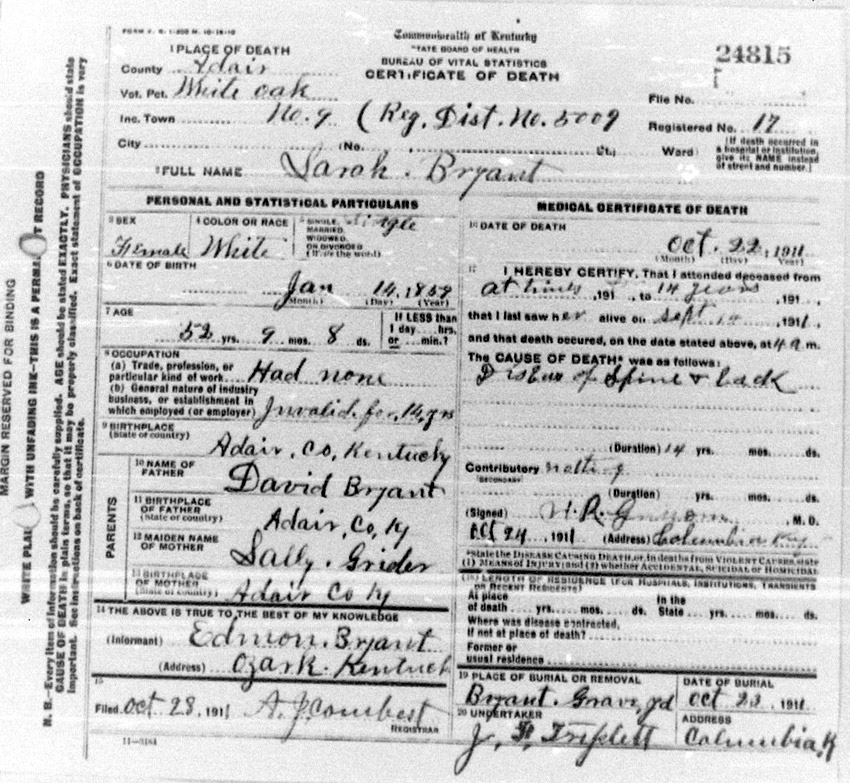 FORM V. S. 1-500 M. 10-18-10
Commonwealth of Kentucky
STATE BOARD OF HEALTH
BUREAU OF VITAL STATISTICS
CERTIFICATE OF DEATH
24815
1 PLACE OF DEATH
County Adair
Vot. Pct. White oak
Inc. Town No. 9 (Reg. Dist. No. 5009
City (No. St.; Ward)
File No.
Registered No. 17
[If death occurred in a hospital or institution, give its NAME instead of street and number.]
2 FULL NAME Sarah. Bryant
PERSONAL AND STATISTICAL PARTICULARS
3 SEX Female
4 COLOR OR RACE White
5 SINGLE, MARRIED, WIDOWED, OR DIVORCED (Write the word) Single
6 DATE OF BIRTH
Jan 14, 1859
(Month) (Day) (Year)
7 AGE
52 yrs. 9 mos. 8 ds.
If LESS than 1 day ... hrs. or ... min.?
8 OCCUPATION
(a) Trade, profession, or particular kind of work Had none
(b) General nature of industry business, or establishment in which employed (or employer) Invalid for, 14, yrs
9 BIRTHPLACE
(State or country) Adair, Co, Kentucky
PARENTS
10 NAME OF FATHER David Bryant
11 BIRTHPLACE OF FATHER (State or country) Adair, Co, Ky
12 MAIDEN NAME OF MOTHER Sally. Grider
13 BIRTHPLACE OF MOTHER (State or country) Adair Co Ky
14 THE ABOVE IS TRUE TO THE BEST OF MY KNOWLEDGE
(Informant) Edmon. Bryant
(Address) Ozark. Kentuck
15
Filed Oct 28, 1911 A. J. Combest
REGISTRAR
11-3184
MEDICAL CERTIFICATE OF DEATH
16 DATE OF DEATH
Oct. 22, 1911
(Month) (Day) (Year)
17 I HEREBY CERTIFY, That I attended deceased from
at times, 191 , to 14 years, 191 ,
that I last saw her alive on Sept, 1911,
and that death occured, on the date stated above, at 4 a m.
The CAUSE OF DEATH* was as follows:
Disease of Spine & back
(Duration) 14 yrs. mos. ds.
Contributory nothing
(SECONDARY)
(Duration) yrs. mos. ds.
(Signed) , M. D.
Oct 24, 1911 (Address) Columbia Ky
*State the DISEASE CAUSING DEATH, or, in deaths from VIOLENT CAUSES, state
(1) MEANS OF INJURY; and (2) whether ACCIDENTAL, SUICIDAL or HOMICIDAL
18 LENGTH OF RESIDENCE (FOR HOSPITALS, INSTITUTIONS, TRANSIENTS
OR RECENT RESIDENTS)
At place of death yrs. mos. ds. In the State yrs. mos. ds.
Where was disease contracted,
If not at place of death?
Former or
usual residence
19 PLACE OF BURIAL OR REMOVAL
Bryant. Grave, yd
DATE OF BURIAL
Oct 22, 1911
20 UNDERTAKER
J. F. Triplett
ADDRESS
Columbia, K
MARGIN RESERVED FOR BINDING
WRITE PLAI WITH UNFADING INK—THIS IS A PERMA T RECORD
N. B.—Every item of information should be carefully supplied. AGE should be stated EXACTLY. PHYSICIANS should state
CAUSE OF DEATH in plain terms, so that it may be properly classified. Exact statement of OCCUPATION is very
important. See instructions on back of certificate.